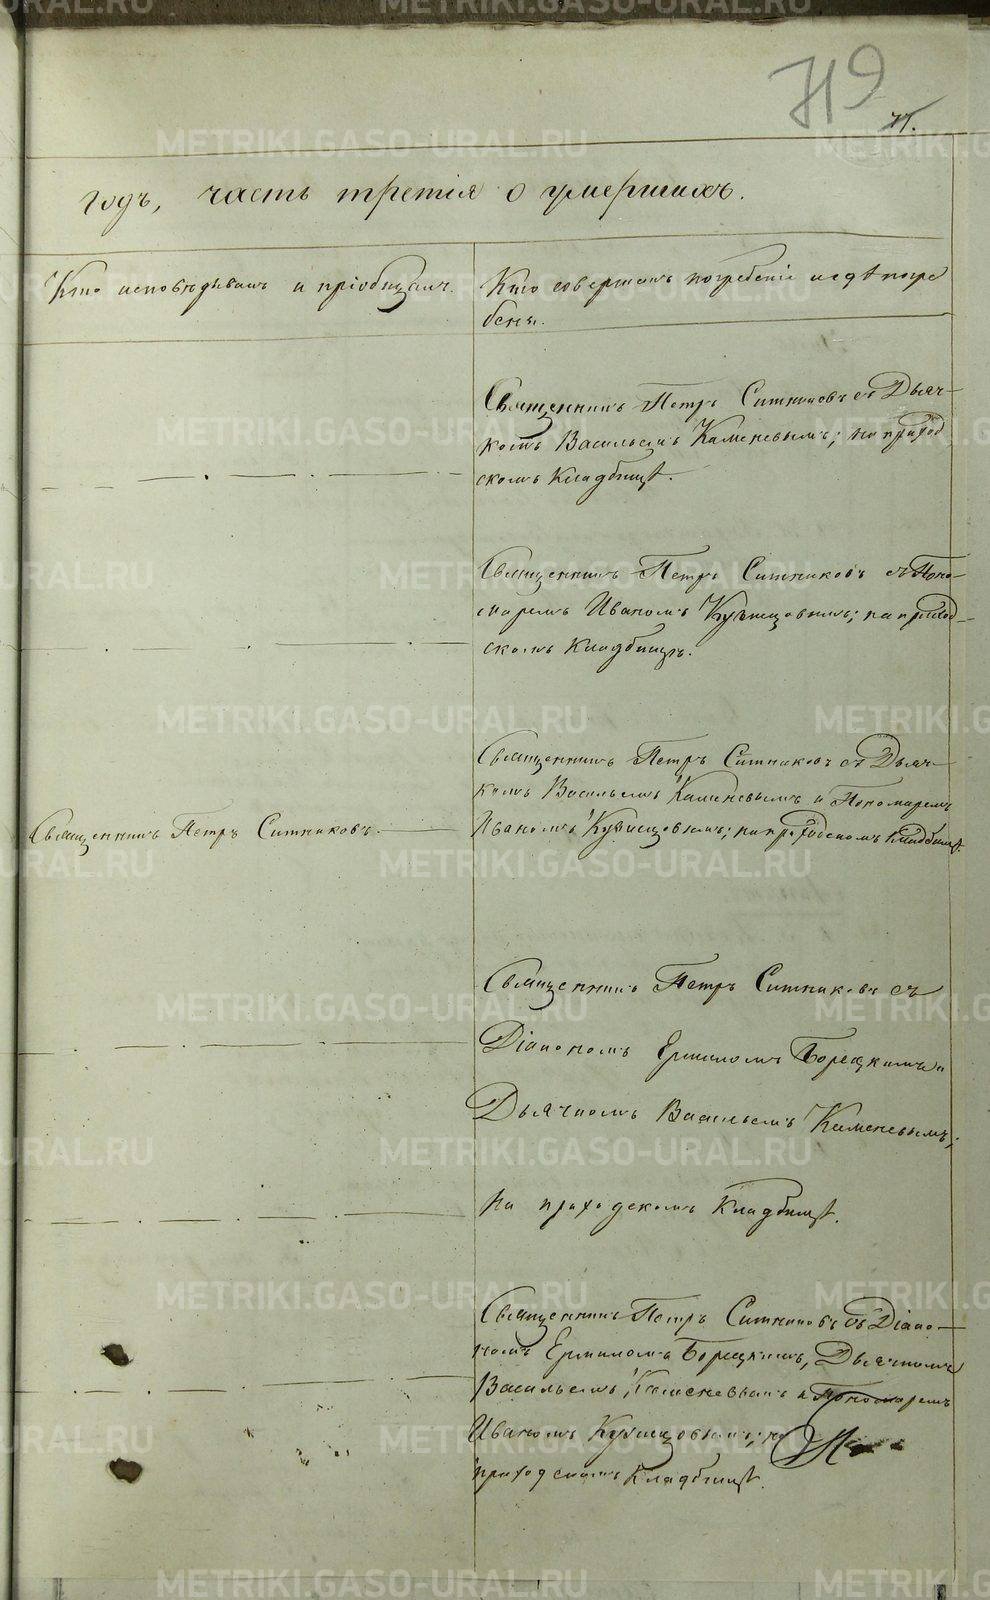 719
71.
годъ, часть третія о умершихъ.
Кто исповѣдывалъ и пріобщалъ.
Кто совершалъ погребеніе и гдѣ погре
бены.
Священникъ Петръ Ситниковъ съ Дьяч-
комъ Васильемъ Каменевымъ; на приход
скомъ Кладбищѣ.
Священникъ Петръ Ситниковъ съ Поно-
маремъ Иваномъ Кузнецовымъ; на приход-
скомъ Кладбищѣ.
Священникъ Петръ Ситниковъ съ Дьяч-
комъ Васильемъ Каменевымъ и Пономаремъ
Иваномъ Кузнецовымъ; на приходскомъ Кладбищѣ.
Священникъ Петръ Ситниковъ.
Священникъ Петръ Ситниковъ съ
Діакономъ Ермиломъ Борецкимъ и
Дьячкомъ Васильемъ Каменевымъ;
на приходскомъ Кладбищѣ.
Священникъ Петръ Ситниковъ съ Діако-
номъ Ермиломъ Борецкимъ, Дьячкомъ
Васильемъ Каменевымъ и Пономаремъ
Иваномъ Кузнецовымъ; на
приходскомъ Кладбищѣ.
METRIKI.GASO-URAL.RU